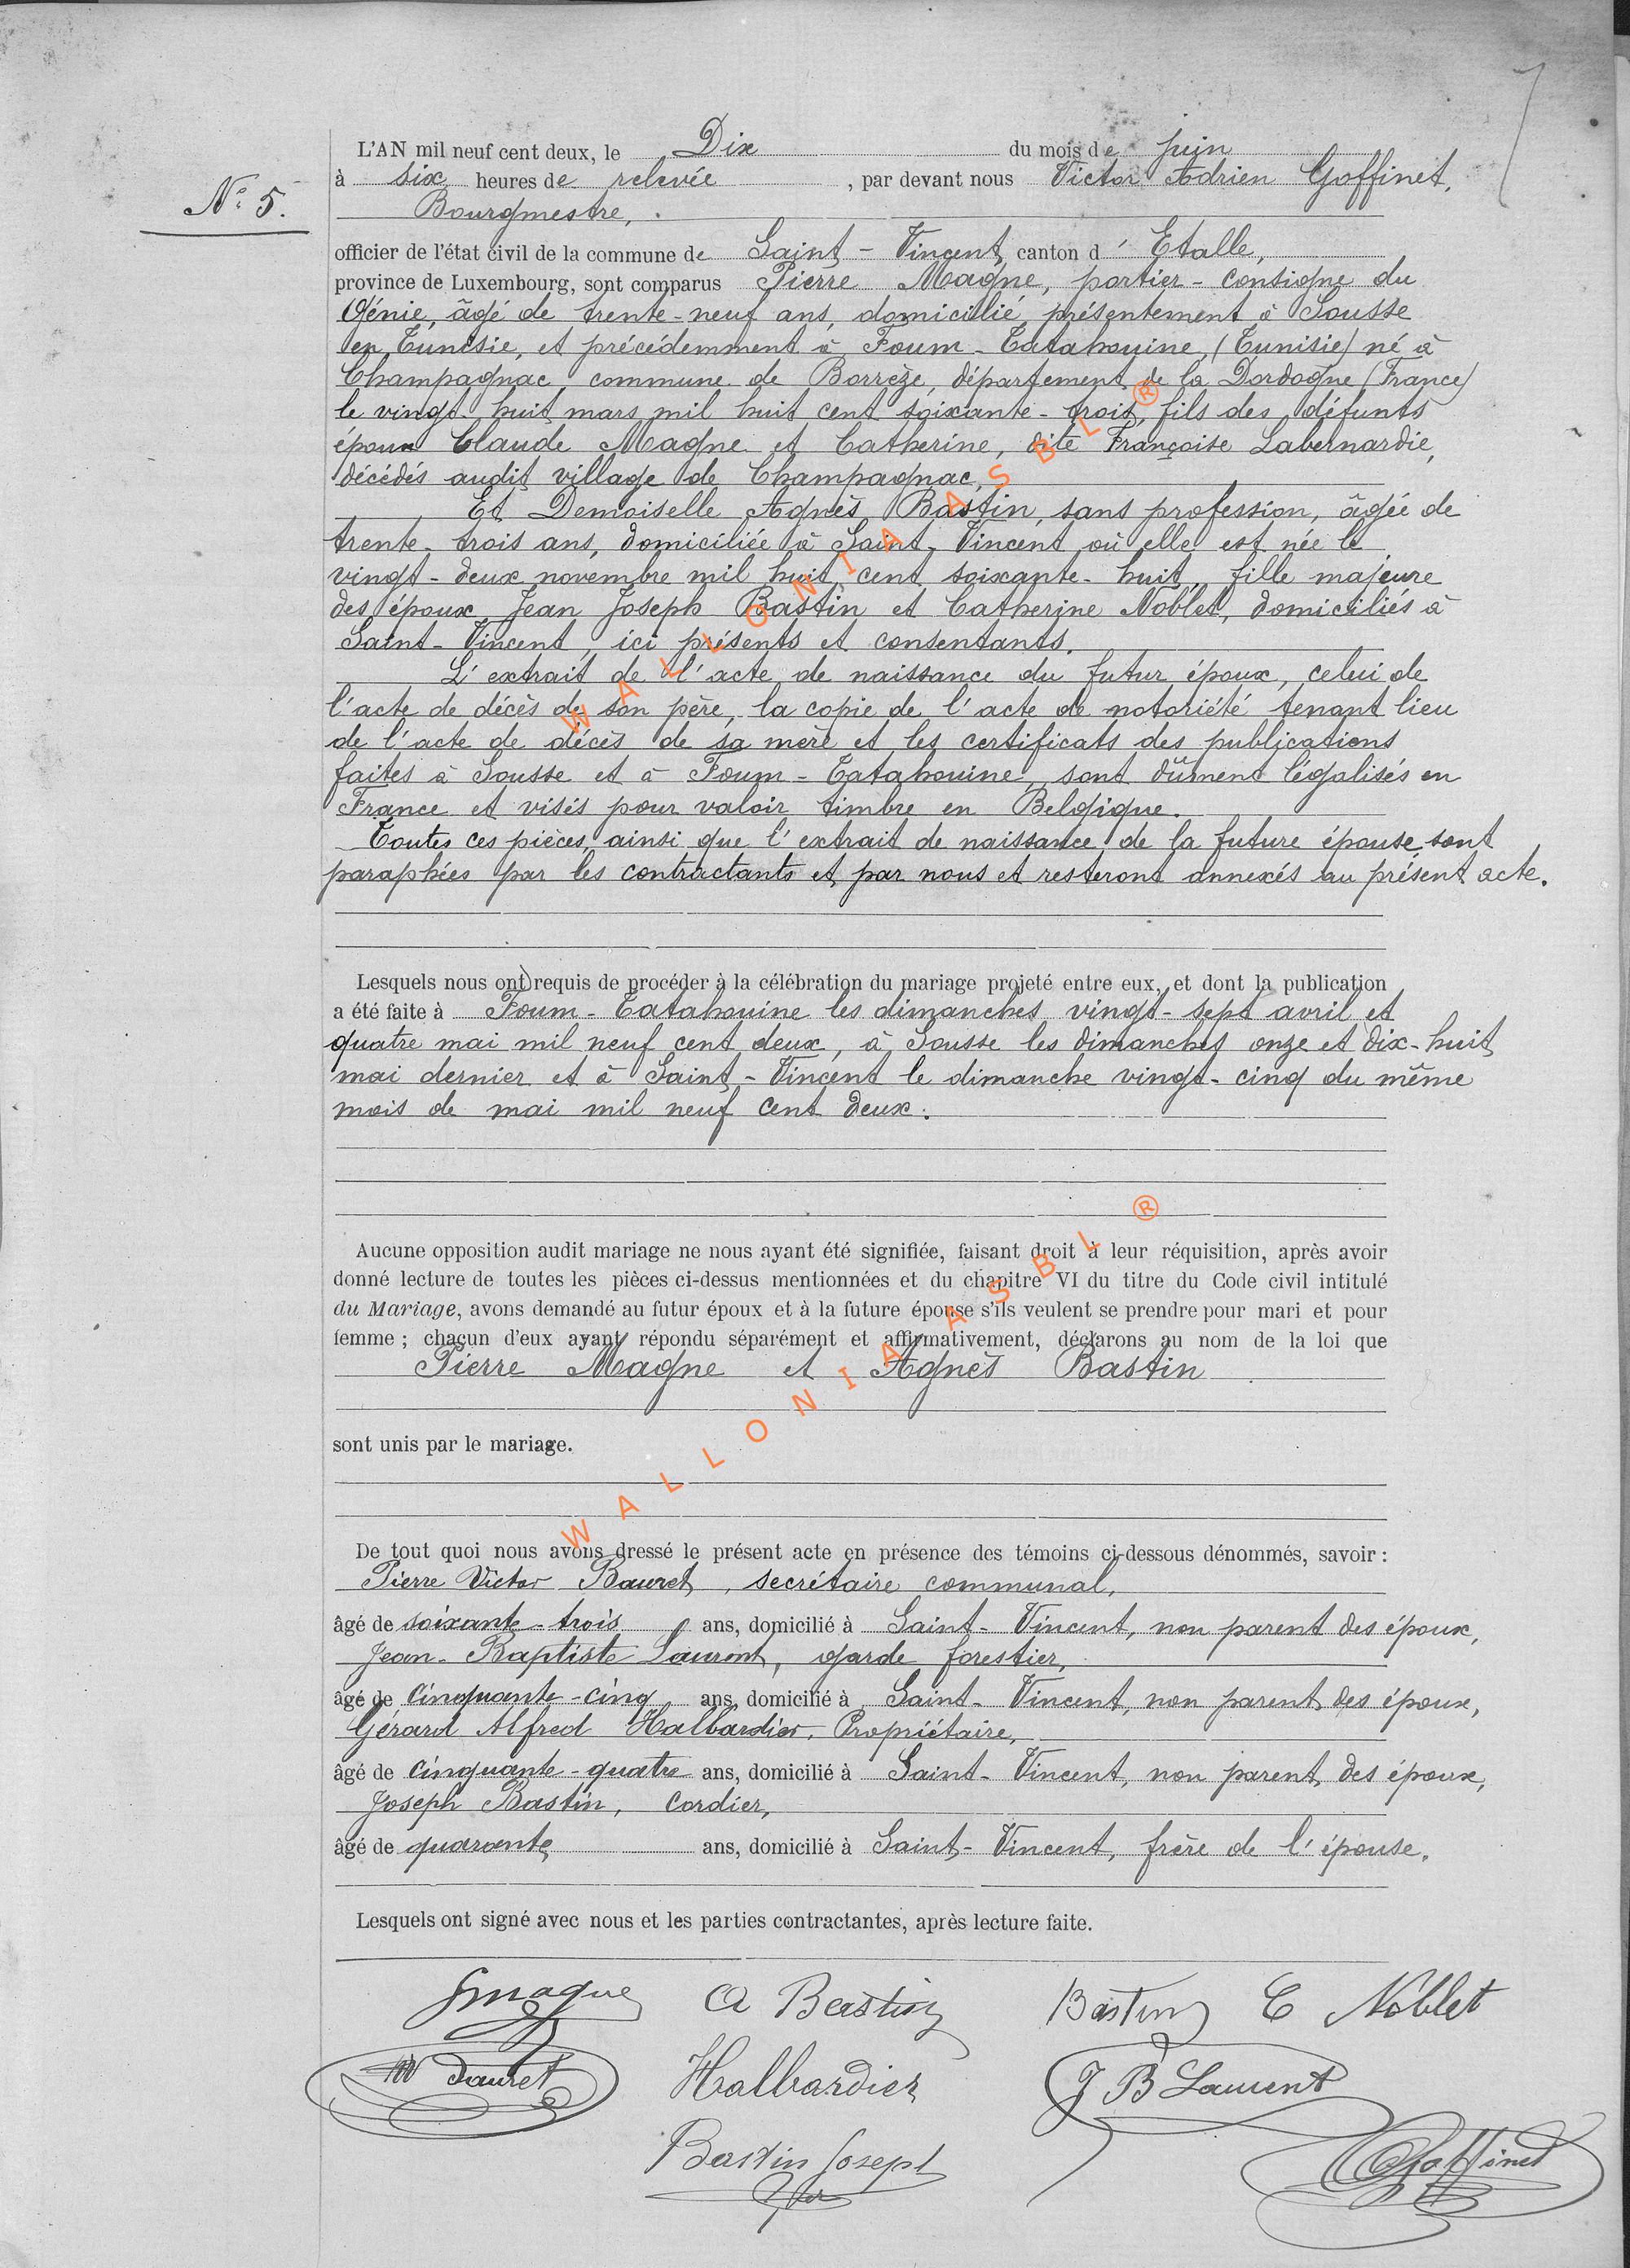 L'AN mil neuf cent deux, le Dix du mois de juin
à six heures de relevée, par devant nous Victor Adrien Goffinet,
N° 5.
Bourgmestre,
officier de l'état civil de la commune de Saint-Vincent canton d'Etalle,
province de Luxembourg, sont comparus Pierre Magne, portier-consigne du
Génie, âgé de trente-neuf ans, domicilié présentement à Sousse
en Tunisie, et précédemment à Foum-Tatahouine, (Tunisie) né à
Champagnac, commune de Borrèze, département de la Dordogne (France)
le vingt-huit mars mil huit cent soixante-trois, fils des défunts
époux Claude Magne et Catherine, dite Françoise Labernardie,
décédés audit village de Champagnac,
Et Demoiselle Agnès Bastin, sans profession, âgée de
trente-trois ans, domiciliée à Saint-Vincent où elle est née le
vingt-deux novembre mil huit cent soixante-huit, fille majeure
des époux Jean Joseph Bastin et Catherine Noblet, domiciliés à
Saint-Vincent, ici présents et consentants.
L'extrait de l'acte de naissance du futur époux, celui de
l'acte de décès de son père, la copie de l'acte de notoriété tenant lieu
de l'acte de décès de sa mère et les certificats des publications
faites à Sousse et à Foum-Tatahouine, sont dûment légalisés en
France et visés pour valoir timbre en Belgique.
Toutes ces pièces, ainsi que l'extrait de naissance de la future épouse, sont
paraphées par les contractants et par nous et resteront annexés au présent acte.
Lesquels nous ont requis de procéder à la célébration du mariage projeté entre eux, et dont la publication
a été faite à Foum-Tatahouine les dimanches vingt-sept avril et
quatre mai mil neuf cent deux, à Sousse les dimanches onze et dix-huit
mai dernier et à Saint-Vincent le dimanche vingt-cinq du même
mois de mai mil neuf cent deux.
Aucune opposition audit mariage ne nous ayant été signifiée, faisant droit à leur réquisition, après avoir
donné lecture de toutes les pièces ci-dessus mentionnées et du chapitre VI du titre du Code civil intitulé
du Mariage, avons demandé au futur époux et à la future épouse s'ils veulent se prendre pour mari et pour
femme ; chacun d'eux ayant répondu séparément et affirmativement, déclarons au nom de la loi que
Pierre Magne et Agnès Bastin
sont unis par le mariage.
De tout quoi nous avons dressé le présent acte en présence des témoins ci-dessous dénommés, savoir :
Pierre Victor Bauret, secrétaire communal,
âgé de soixante-trois ans, domicilié à Saint-Vincent, non parent des époux,
Jean-Baptiste Laurent, garde forestier,
âgé de cinquante-cinq ans, domicilié à Saint-Vincent, non parent des époux,
Gérard Alfred Halbardier, Propriétaire,
âgé de cinquante-quatre ans, domicilié à Saint-Vincent, non parent des époux,
Joseph Bastin, cordier,
âgé de quarante ans, domicilié à Saint-Vincent, frère de l'épouse.
Lesquels ont signé avec nous et les parties contractantes, après lecture faite.
Magne A Bastin Bastin C Noblet
Bauret Halbardier J B Laurent
Bastin Joseph Goffinet
WALLONIA ASBL ®
WALLONIA ASBL ®